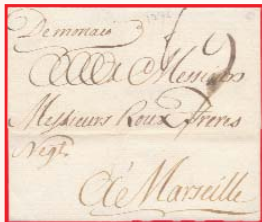 A Messieurs
Messieurs Roux Freres
Negt
A Marseille